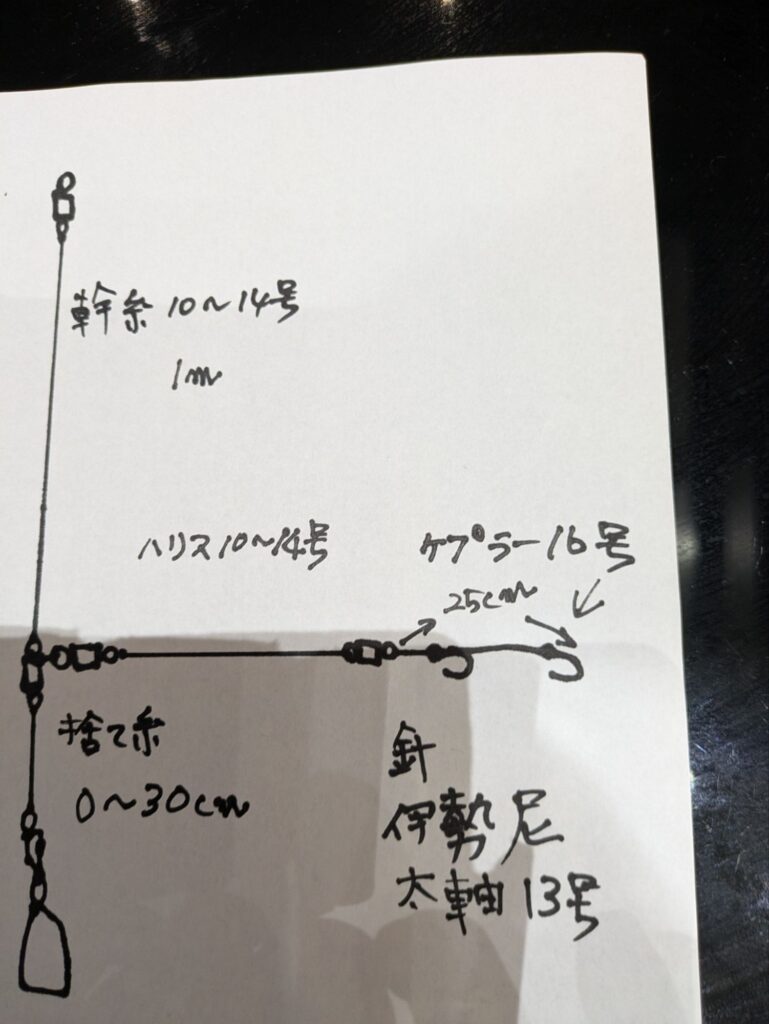 幹糸 10〜14号
1m
ハリス10〜14号
ケプラー16号
25cm
捨て糸
0〜30cm
針
伊勢尼
太軸13号